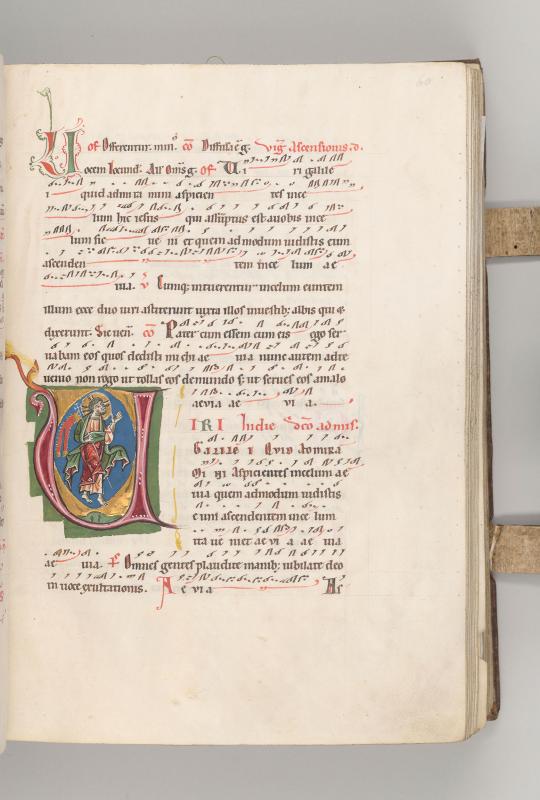 of Offerentur. min. co Diffusa e g. vig Ascensionis. d.
ocem Iocund. All Omis g. of Vi ri galile
i quid admira mini aspicien tes ince
lum hic iesus qui assuptus est a uobis ince
lum sic ue ni et quem ad modum uidistis eum
ascenden tem ince lum ae
uia. v Cumq; intuerentur incelum euntem
illum ecce duo uiri astiterunt iuxta illos inuestib; albis qui &
dixerunt. Sic ueni. co Pater cum essem cum eis ego ser
uabam eos quos dedisti michi ae uia nunc autem ad te
uenio non rogo ut tollas eos de mundo s; ut serues eos amalo
aeuia ae vi a.
IRI In die sco ad miss.
GALILEI QVID Admira
mi ni aspicientes incelum ae
uia quem admodum uidistis
eum ascendentem ince lum
ita ue niet ae vi a ae uia
ae uia. ps Omnes gentes plaudite manib; iubilate deo
in uoce exultationis. A e vi a As